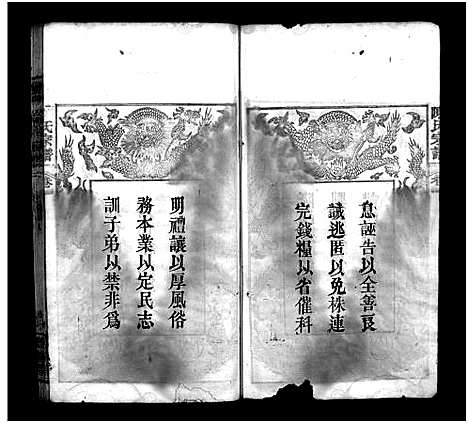 陳氏宗譜 卷
息誣告以全善良
誡逃匿以免株連
完錢糧以省催科
明禮讓以厚風俗
務本業以定民志
訓子弟以禁非爲
氏宗譜 卷